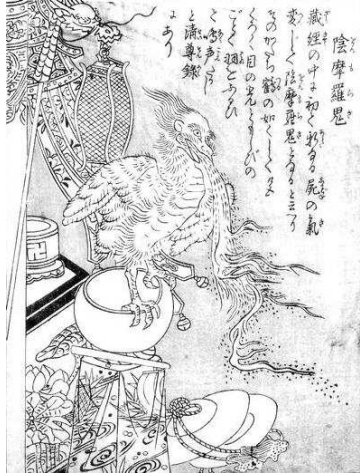 陰摩羅鬼
藏経の中に初て新なる屍の氣
変じて陰摩羅鬼となると云り
そのかたち鶴の如くして色
くろく目の光ともしびの
ごとく羽をふるひ
て鳴声たかし
と清尊録
にあり